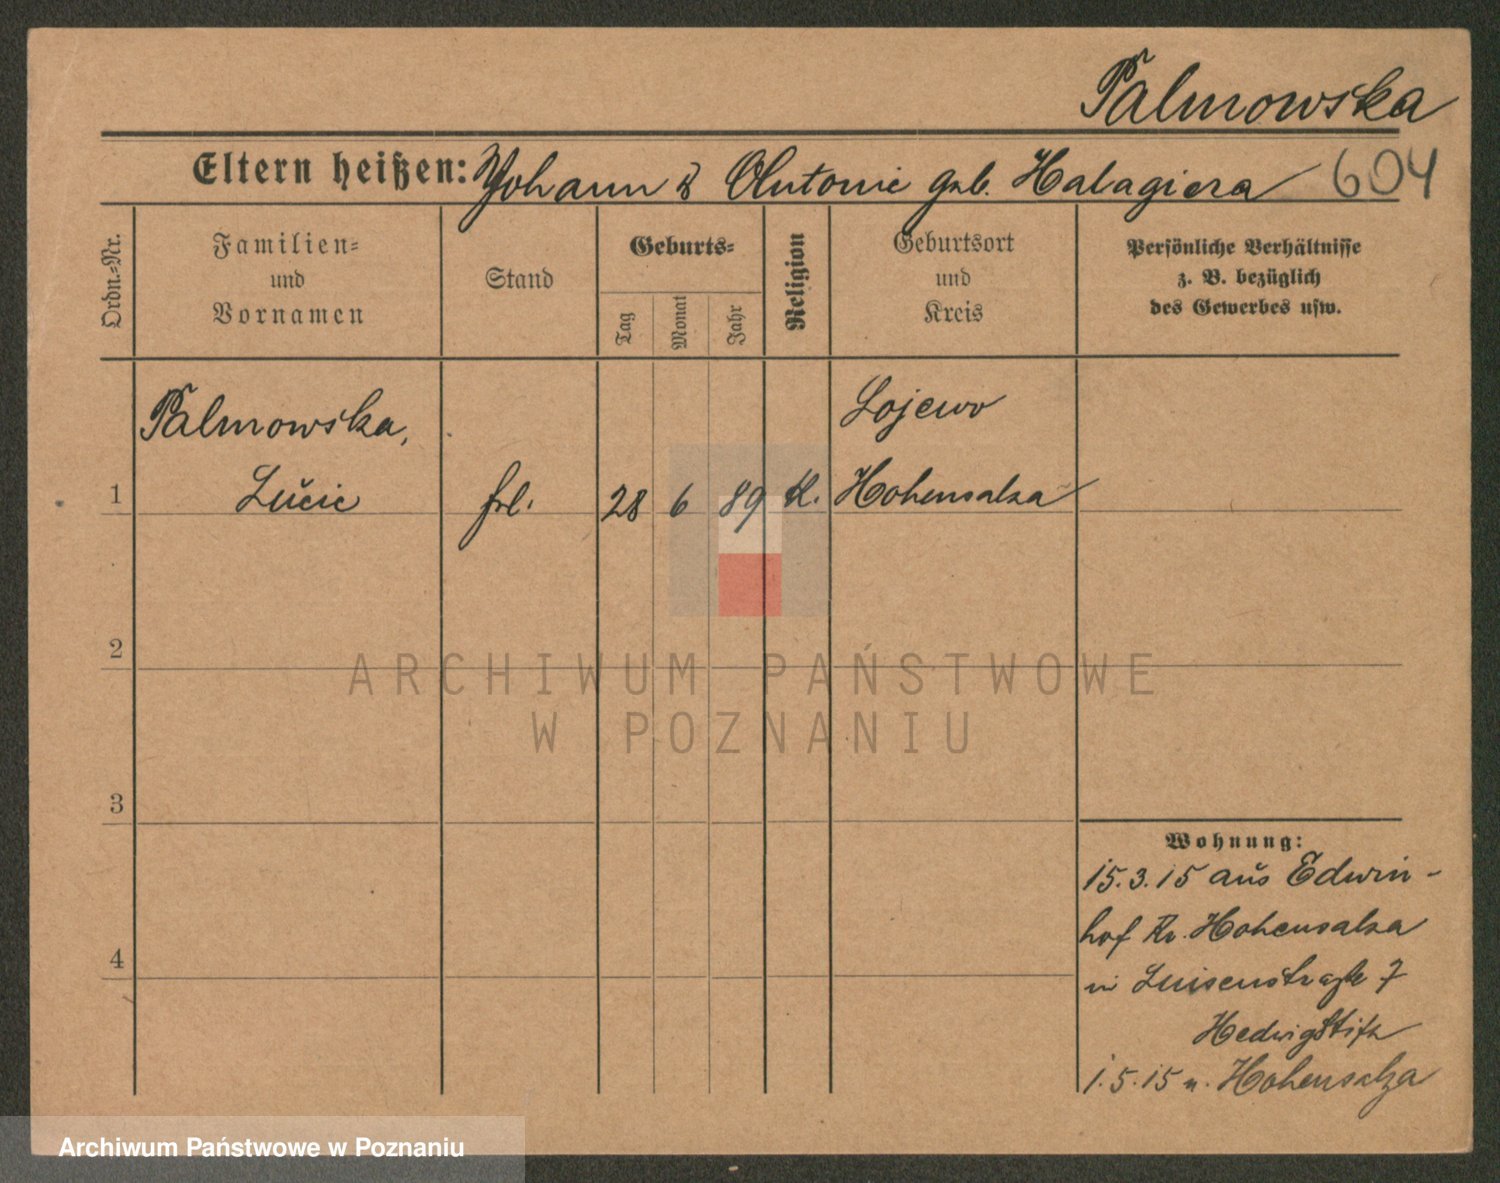 Palmowska
Eltern heißen: Johann & Antonie geb. Halagiera 604
Ordn.-Nr.
Familien-
und
Vornamen
Stand
Geburts-
Tag
Monat
Jahr
Religion
Geburtsort
und
Kreis
Persönliche Verhältnisse
z. B. bezüglich
des Gewerbes usw.
Palmowska,
1 Lucie frl. 28 6 89 k. Lojewo
Hohensalza
2
3
4
Wohnung:
15.3.15 aus Edwin-
hof Kr. Hohensalza
in Luisenstraße 7
Hedwigstift
1.5.15 n. Hohensalza
ARCHIWUM PAŃSTWOWE
W POZNANIU
Archiwum Państwowe w Poznaniu